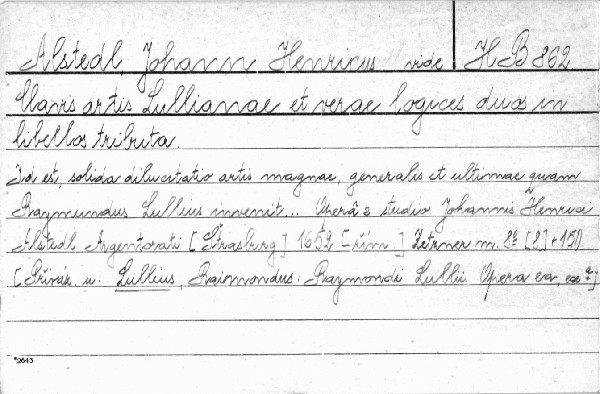 Alstedl, Johann Henricus vide HB 862
Clavis artis Lullianae et verae logices duos in
libellos tributa.
Id est, solida dilucitatio artis magnae, generalis et ultimae quam
Raymundus Lullius invenit... Operâ & studio Johannis Henrici
Alstedl. Argentorati [Strasburg] 1652 [-řím.] Zetzner m. 8° [8] + 150
[Přiváz. u. Lullius, Raimondus: Raymondi Lullii Opera ea, ex.
*2643